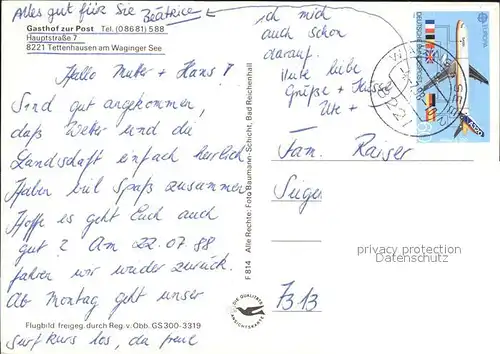 Alles gut für Sie Beatrice
Gasthof zur Post Tel. (08681) 588
Hauptstraße 7
8221 Tettenhausen am Waginger See
Hallo Mutter + Hans !
Sind gut angekommen,
daß Wetter und die
Landschaft einfach herrlich
Haben viel Spaß zusammen
Hoffe es geht Euch auch
gut ? Am 22.07.88
fahren wir wieder zurück.
Ab Montag geht unser
Surfkurs los, da freue
ich mich
auch schon
darauf.
liebe
Grüße +
Ute +
Fam. Kaiser
7313
EUROPA
DEUTSCHE BUNDESPOST
WAGING A. SEE
8221
privacy protection
Datenschutz
F 814 Alle Rechte: Foto Baumann-Schicht, Bad Reichenhall
DIE QUALITÄTS
ANSICHTSKARTE
Flugbild freigeg. durch Reg. v. Obb. GS 300-3319